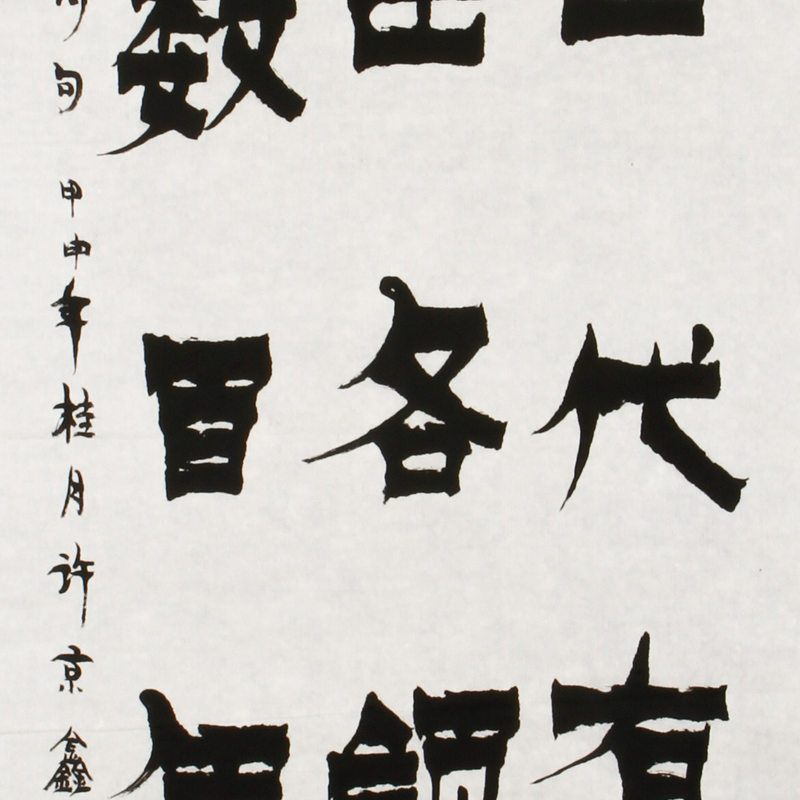 代有
出各領
数百年
句甲申年桂月许京鑫